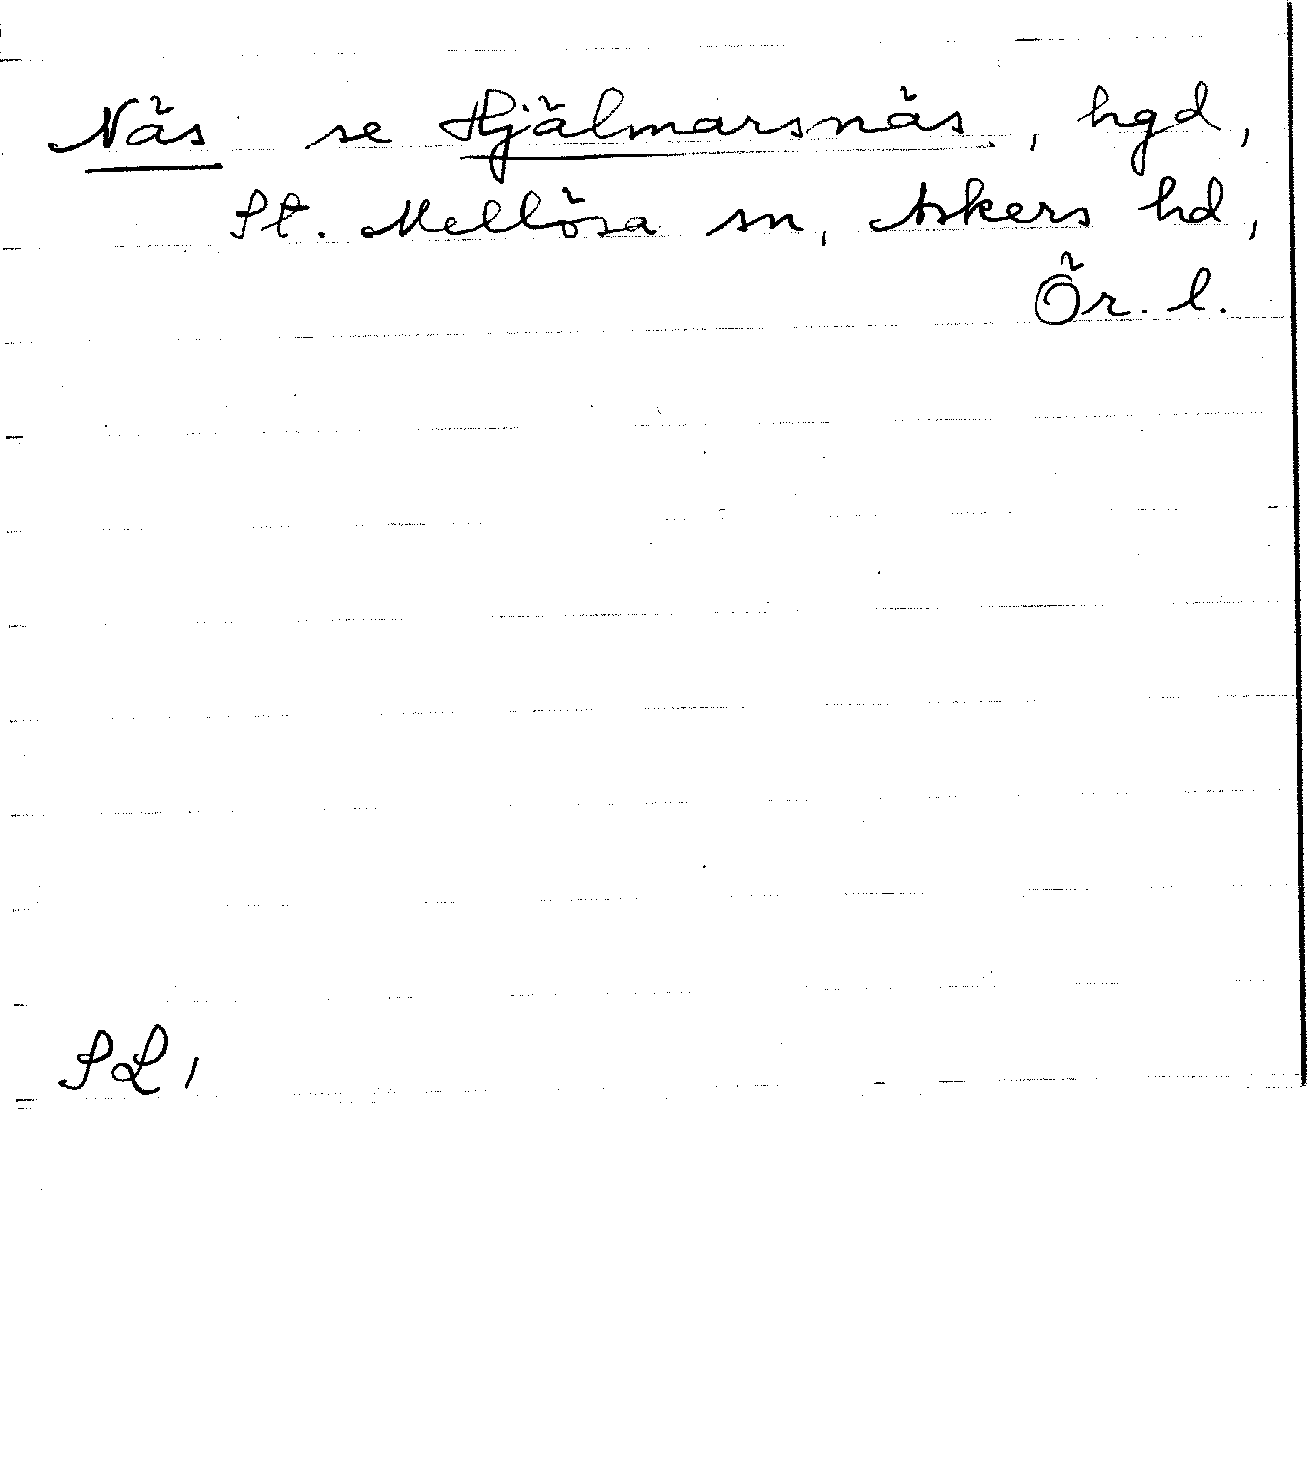 Näs se Hjälmarsnäs, hgd,
St. Mellösa sn, Askers hd,
Ör. l.
SL,